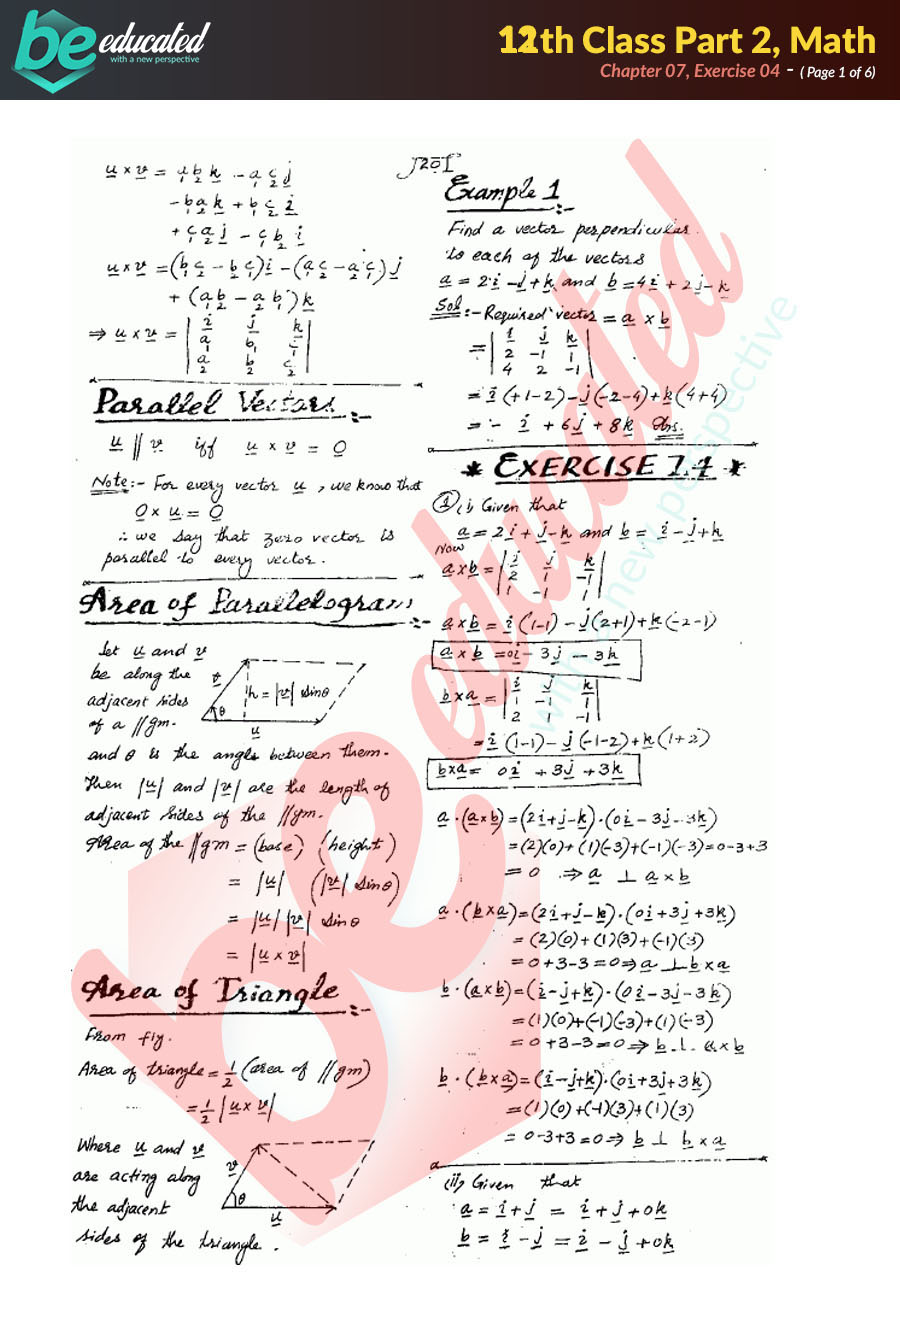 be educated
with a new perspective
12th Class Part 2, Math
Chapter 07, Exercise 04 - ( Page 1 of 6)
u × v = a₁b₂k - a₁c₂j
- b₁a₂k + b₁c₂i
+ c₁a₂j - c₁b₂i
u × v = (b₁c₂ - b₂c₁)i - (a₁c₂ - a₂c₁)j
+ (a₁b₂ - a₂b₁)k
⇒ u × v = | i j k |
| a₁ b₁ c₁ |
| a₂ b₂ c₂ |
Parallel Vectors :-
u ∥ v iff u × v = 0
Note:- For every vector u, we know that
0 × u = 0
∴ we say that zero vector is
parallel to every vector.
Area of Parallelogram :-
Let u and v
be along the
adjacent sides
of a //gm.
v
h = |v| sinθ
θ
u
and θ is the angle between them.
Then |u| and |v| are the length of
adjacent sides of the //gm.
Area of the //gm = (base) (height)
= |u| (|v| sinθ)
= |u| |v| sinθ
= |u × v|
Area of Triangle :-
From fig.
Area of triangle = 1/2 (area of //gm)
= 1/2 |u × v|
Where u and v
are acting along
the adjacent
sides of the triangle.
v
θ
u
Example 1 :-
Find a vector perpendicular
to each of the vectors
a = 2i - j + k and b = 4i + 2j - k
Sol:- Required vector = a × b
= | i j k |
| 2 -1 1 |
| 4 2 -1 |
= i (+1-2) - j(-2-4) + k(4+4)
= - i + 6j + 8k Ans.
* EXERCISE 7.4 *
① (i) Given that
a = 2i + j - k and b = i - j + k
Now
a × b = | i j k |
| 2 1 -1 |
| 1 -1 1 |
a × b = i (1-1) - j(2+1) + k(-2-1)
a × b = 0i - 3j - 3k
b × a = | i j k |
| 1 -1 1 |
| 2 1 -1 |
= i (1-1) - j(-1-2) + k(1+2)
b × a = 0i + 3j + 3k
a · (a × b) = (2i + j - k) · (0i - 3j - 3k)
= (2)(0) + (1)(-3) + (-1)(-3) = 0-3+3
= 0 ⇒ a ⊥ a × b
a · (b × a) = (2i + j - k) · (0i + 3j + 3k)
= (2)(0) + (1)(3) + (-1)(3)
= 0+3-3 = 0 ⇒ a ⊥ b × a
b · (a × b) = (i - j + k) · (0i - 3j - 3k)
= (1)(0) + (-1)(-3) + (1)(-3)
= 0+3-3 = 0 ⇒ b ⊥ a × b
b · (b × a) = (i - j + k) · (0i + 3j + 3k)
= (1)(0) + (-1)(3) + (1)(3)
= 0-3+3 = 0 ⇒ b ⊥ b × a
(ii) Given that
a = i + j = i + j + 0k
b = i - j = i - j + 0k
be educated
with a new perspective